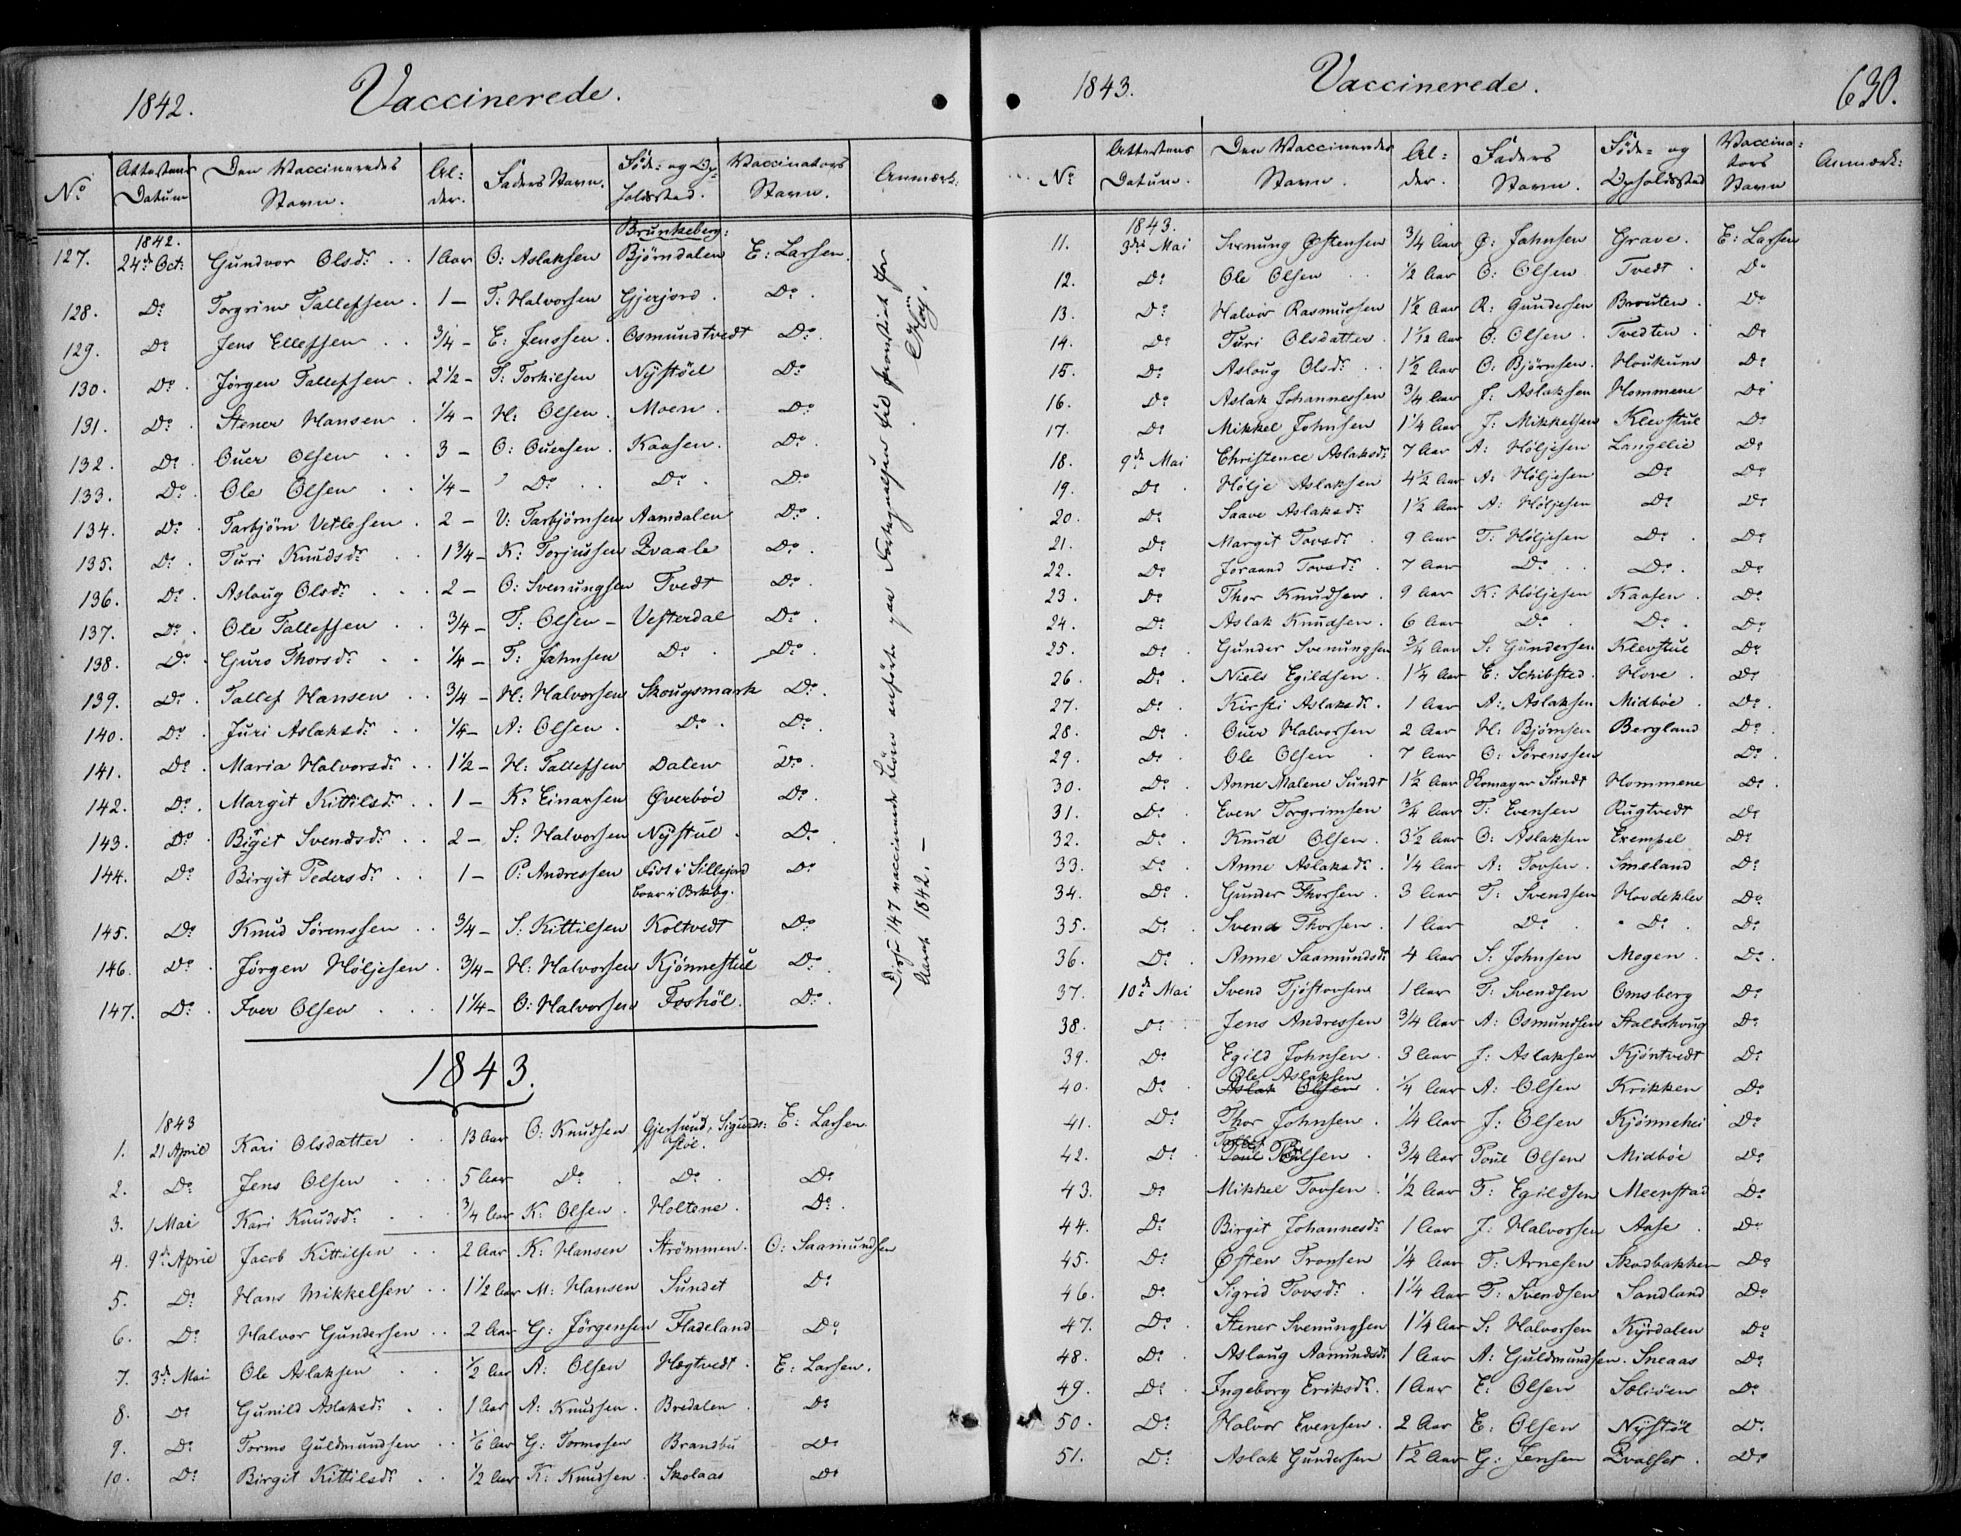 1842. Vaccinerede.
No Attestens Datum Den Vaccineredes Navn. Al- der. Faders Navn. Føde- og Op- holdssted. Vaccinators Navn. Anmærk:
1842. Brunkeberg:
127. 24de Oct: Gundvor Olsdr. 1 Aar O: Aslaksen Bjørndalen E: Larsen.
128. Do Torgrim Tallefsen. 1 – T: Halvorsen Gjerjord. Do.
129. Do Jens Ellefsen 3/4 – E: Jenssen. Osmundtvedt Do.
130. Do. Jørgen Tallefsen. 2 1/2 – T: Torkilsen Nystöel Do
131. Do. Stener Hansen. 1/4 – H: Olsen. Moen. Do.
132. Do. Ouer Olsen 3 – O: Ouersen. Kaasen. Do.
133. Do. Ole Olsen 1/4 – Do. Do. Do
134. Do. Tarbjörn Vetlesen. 2 – V: Tarbjørnsen Aamdalen Do.
135. Do. Turi Knudsdr. 1 3/4 – K: Torjussen Qvaale Do.
136. Do. Aslaug Olsdr. 2 – O: Svenungsen Tvedt Do.
137. Do. Ole Tallefsen 3/4 – T: Olsen – Vesterdal Do.
138. Do. Guro Thorsdr. 1/4 – T: Jahnsen Do. Do.
139. Do. Tallef Hansen 3/4 – H: Halvorsen Skougsmark Do.
140. Do. Juri Aslaksdr. 1/4 – A: Olsen. Do. Do.
141. Do. Maria Halvorsdr. 1 1/2 – H: Tallefsen Dalen Do.
142. Do. Margit Kittilsdr. 1 – K: Einarsen Øverböe Do.
143. Do. Birgit Svendsdr. 2 – S: Halvorsen Nystul. Do.
144. Do. Birgit Pedersdr. 1 – P: Andressen Födt i Sillejord Do
boer i Brkbg.
145. Do. Knud Sörenssen 3/4 – S: Kittilsen Koltvedt Do.
146. Do. Jörgen Höljesen. 3/4 – H: Halvorsen Kjönnestul Do.
147. Do. Iver Olsen 1 1/4 – O: Halvorsen Foshöl. Do.
Disse 147 vaccinerede ere anførte paa Fortegnelsen fra for
Aaret 1842. –
1843.
1843
1. 21 April Kari Olsdatter 13 Aar O: Knudsen Gjersund, Sigurds- E: Larsen
stöl.
2. Do. Jens Olsen 5 Aar Do. Do. Do
3. 1 Mai Kari Knudsdr. 3/4 Aar K: Olsen. Holtene. Do.
4. 9de April Jacob Kittilsen 2 Aar K: Hansen Strömmen. O: Saamundsen
5. Do. Hans Mikkelsen 1 1/2 Aar M: Hansen Sundet Do.
6. Do. Halvor Gundersen 2 Aar G: Jörgensen Fladeland Do.
7. 3de Mai Ole Aslaksen 1/2 Aar A: Olsen Hægtvedt. E: Larsen.
8. Do Gunild Aslaksdr. 1 Aar A: Knudsen. Bredalen. Do
9. Do. Tormo Guldmundsen 1/6 Aar G: Tormosen Brandbu Do
10. Do. Birgit Kittilsdr. 1/2 Aar K: Knudsen. Skolaas Do
1843. Vaccinerede. 630.
No Attestens Datum. Den Vaccineredes Navn. Al- der. Faders Navn. Føde- og Opholdssted Vaccina- tors Navn Anmærk:
1843.
11. 3die Mai Svenung Østensen 3/4 Aar Ø: Jahnsen Grave. E: Larsen
12. Do. Ole Olsen 1/2 Aar O: Olsen Tvedt Do
13. Do. Halvor Rasmussen 1 1/2 Aar R: Gundersen Brouten. Do
14. Do Turi Olsdatter. 1 1/2 Aar O: Olsen Tvedten. Do
15. Do. Aslaug Olsdr. 1 1/2 Aar O: Björnsen. Houkum Do
16. Do. Aslak Johannessen 3/4 Aar J: Aslaksen Hommene Do
17. Do Mikkel Johnsen 1 1/4 Aar J: Mikkelsen Klevstul Do
18. 9de Mai Christence Aslaksdr 7 Aar A: Höljesen Langelie Do
19. Do. Hölje Aslaksen 4 1/2 Aar A: Höljesen Do Do
20. Do Saave Aslaksdr 1 1/2 Aar A: Höljesen Do. Do
21. Do. Margit Tovsdr. 9 Aar T: Höljesen Do. Do
22. Do. Joraand Tovsdr. 7 Aar Do. Do. Do
23. Do Thor Knudsen. 9 Aar K: Höljesen Kaasen. Do
24. Do. Aslak Knudsen. 6 Aar Do. Do. Do
25. Do. Gunder Svenungsen 3/4 Aar S: Gundersen Klevstul Do
26. Do. Niels Egildsen 1 1/4 Aar E: Schibsted. Hove. Do
27. Do. Kirsti Aslaksdr. 1 Aar A: Aslaksen Midböe Do.
28. Do. Ouer Halvorsen 2 Aar H: Björnsen Bergland Do
29. Do. Ole Olsen 7 Aar O: Sörenssen Do.
30. Do. Anne Malene Sundt 1 1/2 Aar Skomager Sundt Hommene Do.
31. Do. Even Torgrimsen 3/4 Aar T: Evensen Rugtvedt Do
32. Do. Knud Olsen. 3 1/2 Aar O: Aslaksen Exempel Do
33. Do. Anne Aslaksdr. 1/4 Aar A: Tovsen. Smeland Do
34. Do. Gunder Thorsen. 3 Aar T: Svendsen Hovdeklev Do
35. Do. Svend Thorsen. 1 Aar Do. Do. Do
36. Do. Anne Saamundsdr 4 Aar S: Johnsen Mogen. Do.
37. 10de Mai Svend Tjöstovsen 1 Aar T: Svendsen Omsberg Do
38. Do Jens Andressen 3/4 Aar A: Osmundsen Staldskoug Do
39. Do Egild Johnsen. 3 Aar J: Aslaksen Kjöntvedt Do
Ole Aslaksen
40. Do. Aslak Olsen. 1/4 Aar A: Olsen Krikken Do
41. Do. Thor Johnsen. 1/4 Aar J: Olsen Kjönnehei Do
42. Do. Olsen. 3/4 Aar Poul Olsen Midböe Do
43. Do. Mikkel Tovsen. 1/2 Aar T: Egildsen Meenstad Do
44. Do. Birgit Johannesdr. 1 Aar J: Halvorsen Aase. Do
45. Do. Østen Tronsen 1/4 Aar T: Arnesen Skodbakken Do
46. Do. Sigrid Tovsdr. 1 1/4 Aar T: Svendsen Sandland Do
47. Do. Stener Svenungsen 1 1/4 Aar S: Halvorsen Kyrdalen Do
48. Do. Aslaug Aamundsdr 1 Aar A: Guldmundsen. Sneaas Do
49. Do. Ingeborg Eriksdr. 1 Aar E: Olsen Do
50. Do. Halvor Evensen. 2 Aar E: Olsen Nystöl Do
51. Do. Aslak Gundersen 1 1/2 Aar G: Jensen Qvalset. Do